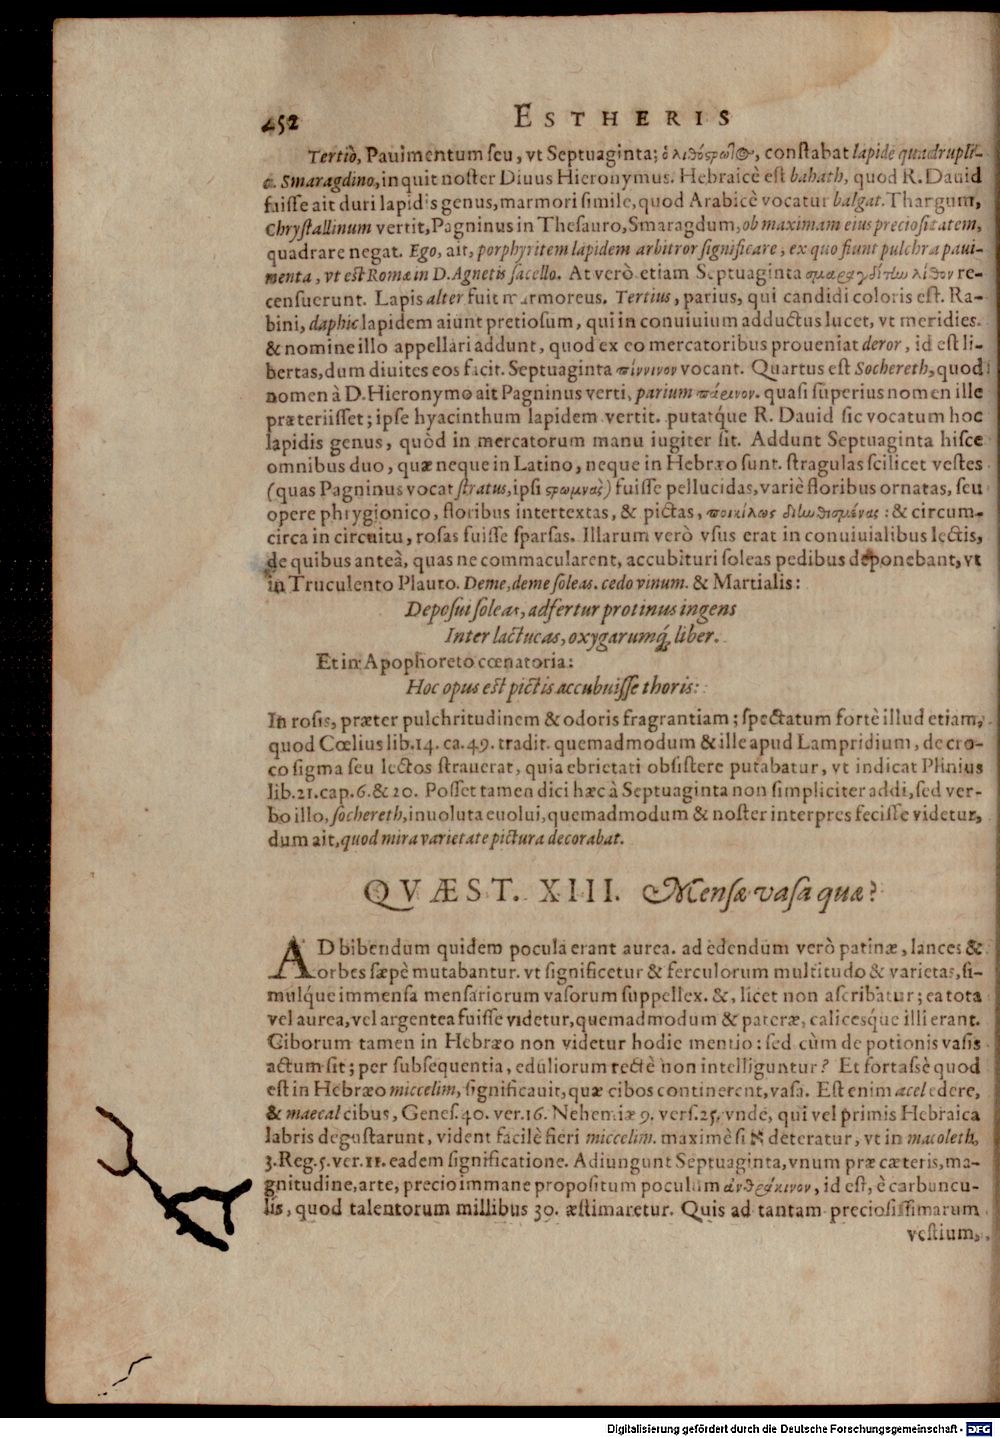 452 ESTHERIS
Tertiò, Pauimentum seu, vt Septuaginta; ὁ λιθόςρωτος, constabat lapide quadrupli-
c. Smaragdino, inquit noster Diuus Hieronymus. Hebraicè est bahath, quod R. Dauid
fuisse ait duri lapidis genus, marmori simile, quod Arabicè vocatur balgat. Thargum,
Chrystallinum vertit, Pagninus in Thesauro, Smaragdum, ob maximam eius preciositatem,
quadrare negat. Ego, ait, porphyritem lapidem arbitror significare, ex quo fiunt pulchra paui-
menta, vt est Romæ in D. Agnetis sacello. At verò etiam Septuaginta σμαραγδίτίω λίθον re-
censuerunt. Lapis alter fuit marmoreus. Tertius, parius, qui candidi coloris est. Ra-
bini, daphic lapidem aiunt pretiosum, qui in conuiuium adductus lucet, vt meridies.
& nomine illo appellari addunt, quod ex eo mercatoribus proueniat deror, id est li-
bertas, dum diuites eos facit. Septuaginta πίννινον vocant. Quartus est Sochereth, quod
nomen à D. Hieronymo ait Pagninus verti, parium πάρινον. quasi superius nomen ille
præteriisset; ipse hyacinthum lapidem vertit. putatq́ue R. Dauid sic vocatum hoc
lapidis genus, quòd in mercatorum manu iugiter sit. Addunt Septuaginta hisce
omnibus duo, quæ neque in Latino, neque in Hebræo sunt. stragulas scilicet vestes
(quas Pagninus vocat stratus, ipsi ςρωμνὰς) fuisse pellucidas, variè floribus ornatas, seu
opere phrygionico, floribus intertextas, & pictas, ποικίλως διίωθισμένας: & circum-
circa in circuitu, rosas fuisse sparsas. Illarum verò vsus erat in conuiuialibus lectis,
de quibus anteà, quas ne commacularent, accubituri soleas pedibus deponebant, vt
in Truculento Plauto. Deme, deme soleas. cedo vinum. & Martialis:
Deposui soleas, adfertur protinus ingens
Inter lactucas, oxygarumq́; liber.
Et in Apophoreto cœnatoria:
Hoc opus est pictis accubuisse thoris:
In rosis, præter pulchritudinem & odoris fragrantiam; spectatum fortè illud etiam,
quod Cœlius lib. 14. ca. 49. tradit. quemadmodum & ille apud Lampridium, de cro-
co sigma seu lectos strauerat, quia ebrietati obsistere putabatur, vt indicat Plinius
lib. 21. cap. 6. & 20. Posset tamen dici hæc à Septuaginta non simpliciter addi, sed ver-
bo illo, sochereth, inuoluta euolui, quemadmodum & noster interpres fecisse videtur,
dum ait, quod mira varietate pictura decorabat.
QVÆST. XIII. Mensæ vasa quæ?
AD bibendum quidem pocula erant aurea. ad edendum verò patinæ, lances &
orbes sæpè mutabantur. vt significetur & ferculorum multitudo & varietas, si-
mulq́ue immensa mensariorum vasorum suppellex. &, licet non ascribatur; ea tota
vel aurea, vel argentea fuisse videtur, quemadmodum & pateræ, calicesq́ue illi erant.
Ciborum tamen in Hebræo non videtur hodie mentio: sed cùm de potionis vasis
actum sit; per subsequentia, eduliorum rectè non intelliguntur? Et fortassè quod
est in Hebræo miccelim, significauit, quæ cibos continerent, vasa. Est enim acel edere,
& maecal cibus, Genes. 40. ver. 16. Nehemiæ 9. vers. 25, vnde, qui vel primis Hebraica
labris degustarunt, vident facilè fieri miccelim. maximè si א deteratur, vt in macoleth,
3. Reg. 5. ver. 11. eadem significatione. Adiungunt Septuaginta, vnum præ cæteris, ma-
gnitudine, arte, precio immane propositum poculum ἀνθράκινον, id est, è carbuncu-
lis, quod talentorum millibus 30. æstimaretur. Quis ad tantam preciosissimarum
vestium,
Digitalisierung gefördert durch die Deutsche Forschungsgemeinschaft - DFG